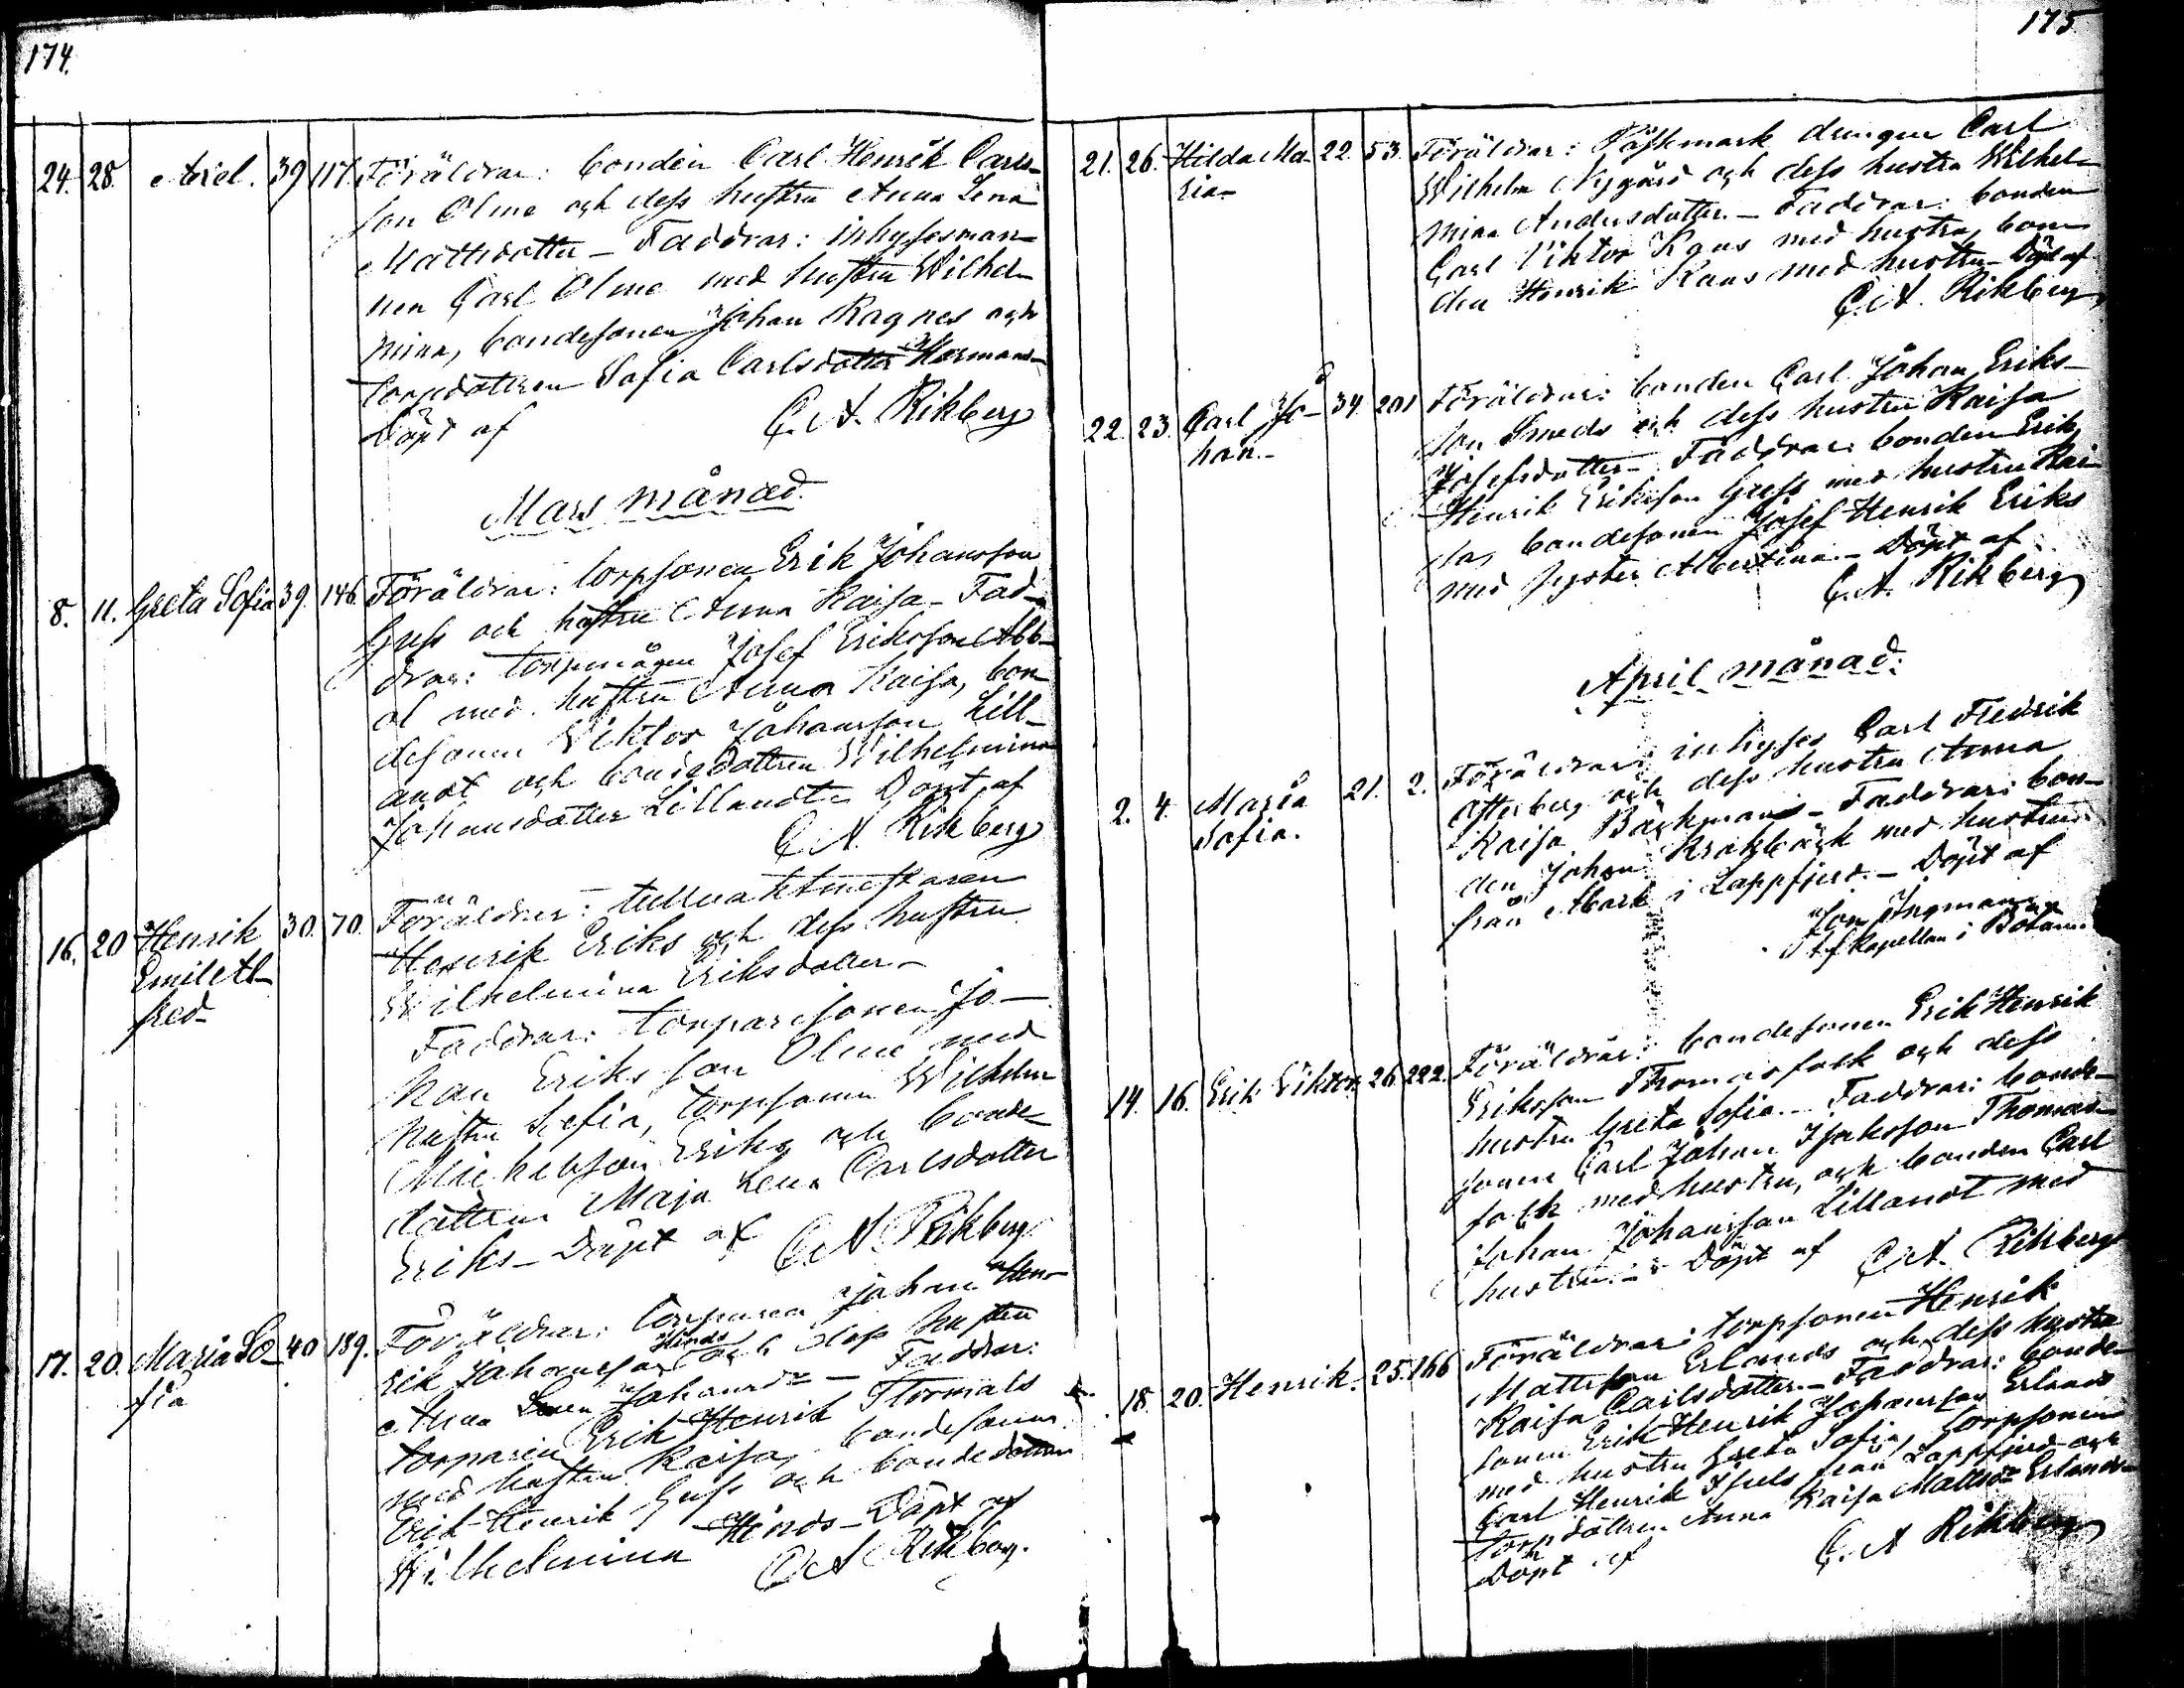 174.
24. 28. Axel. 39 117. Föräldrar: bonden Carl Henrik Carls-
son Olme och dess hustru Anna Lena
Mattsdotter – Faddrar: inhysesman-
nen Carl Olme med hustru Wilhel-
mina, bondesonen Johan Ragnes och
torpdottren Sofia Carlsdotter Hermans-
Döpt af C. A. Rikberg
Mars månad.
8. 11. Greta Sofia 39. 146. Föräldrar: torpsonen Erik Johansson
Guss och hustru Anna Kaisa – Fad-
drar: torpmågen Josef Eriksson Abb-
ol med hustru Anna Kaisa, bon-
desonen Viktor Johansson Lill-
andt och bondedottren Wilhelmina
Johansdotter Lillandt – Döpt af
C. A. Rikberg
16. 20 Henrik 30. 70. Föräldrar:
Emil Al-
fred
Henrik Eriks och dess hustru
Wilhelmina Eriksdotter –
Faddrar: torparesonen Jo-
han Eriksson Olme med
hustru Sofia, torpsonen Wilhelm
Mickelsson Eriks och bonde-
dottren Maja Lena Carlsdotter
Eriks – Döpt af C. A. Rikberg
17. 20. Maria So- 40 189. Föräldrar: torparen Johan Hen-
fia
rik Johansson Hinds och dess hustru
Anna Lena Johansdr – Faddrar:
torparen Erik Henrik Stormåls
med hustru Kaisa, bondesonen
Erik Henrik Guss och bondedottren
Wilhelmina Hinds – Döpt af
C. A. Rikberg.
175.
21. 26. Hilda Ma- 22. 53. Föräldrar: Påskmark drengen Carl
ria –
Wilhelm Nygård och dess hustru Wilhel-
mina Andersdotter. – Faddrar: bonden
Carl Viktor Kaas med hustru, bon-
den Henrik Kaas med hustru – Döpt af
C. A. Rikberg
22. 23. Carl Jo- 34. 201 Föräldrar: bonden Carl Johan Eriks-
han. –
son Smeds och dess hustru Kaisa
Josefsdotter – Faddrar: bonden Erik
Henrik Eriksson Guss med hustru Kai-
sa, bondesonen Josef Henrik Eriks
med syster Albertina. – Döpt af
C. A. Rikberg
April månad:
2. 4. Maria 21. 2. Föräldrar: inhyses Carl Fredrik
Sofia.
Åfterberg och dess hustru Anna
Kaisa Bäckman – Faddrar: bon-
den Johan Kråkbäck med hustru
från Mark i Lappfjerd. – Döpt af
Jon Ingman
Kapellan i Bötom.
14. 16. Erik Viktor 26 222. Föräldrar: bondesonen Erik Henrik
Eriksson Thomasfolk och dess
hustru Greta Sofia – Faddrar: bonde-
sonen Carl Johan Isaksson Thomas-
folk med hustru, och bonden Carl
Johan Johansson Lillandt med
hustru. – Döpt af C. A. Rikberg
18. 20. Henrik. 25. 166 Föräldrar: torpsonen Henrik
Mattsson Erlands och dess hustru
Kaisa Carlsdotter. – Faddrar: bonde-
sonen Erik Henrik Johansson Erlands
med hustru Greta Sofia, torpsonen
Carl Henrik från Lappfjerd och
torpdottren Anna Kaisa Mattsdr Erlands –
Döpt af C. A. Rikberg